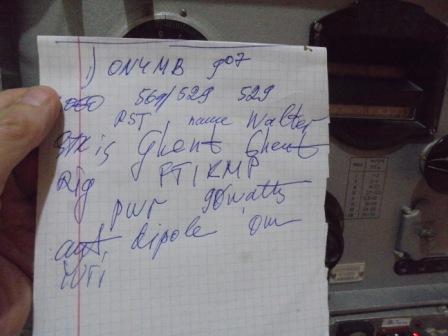 1) ON4MB 907
569/529 529
RST, name Walter
QTH is Ghent Ghent
Rig FT1KMP
pwr 90watts
ant dipole om